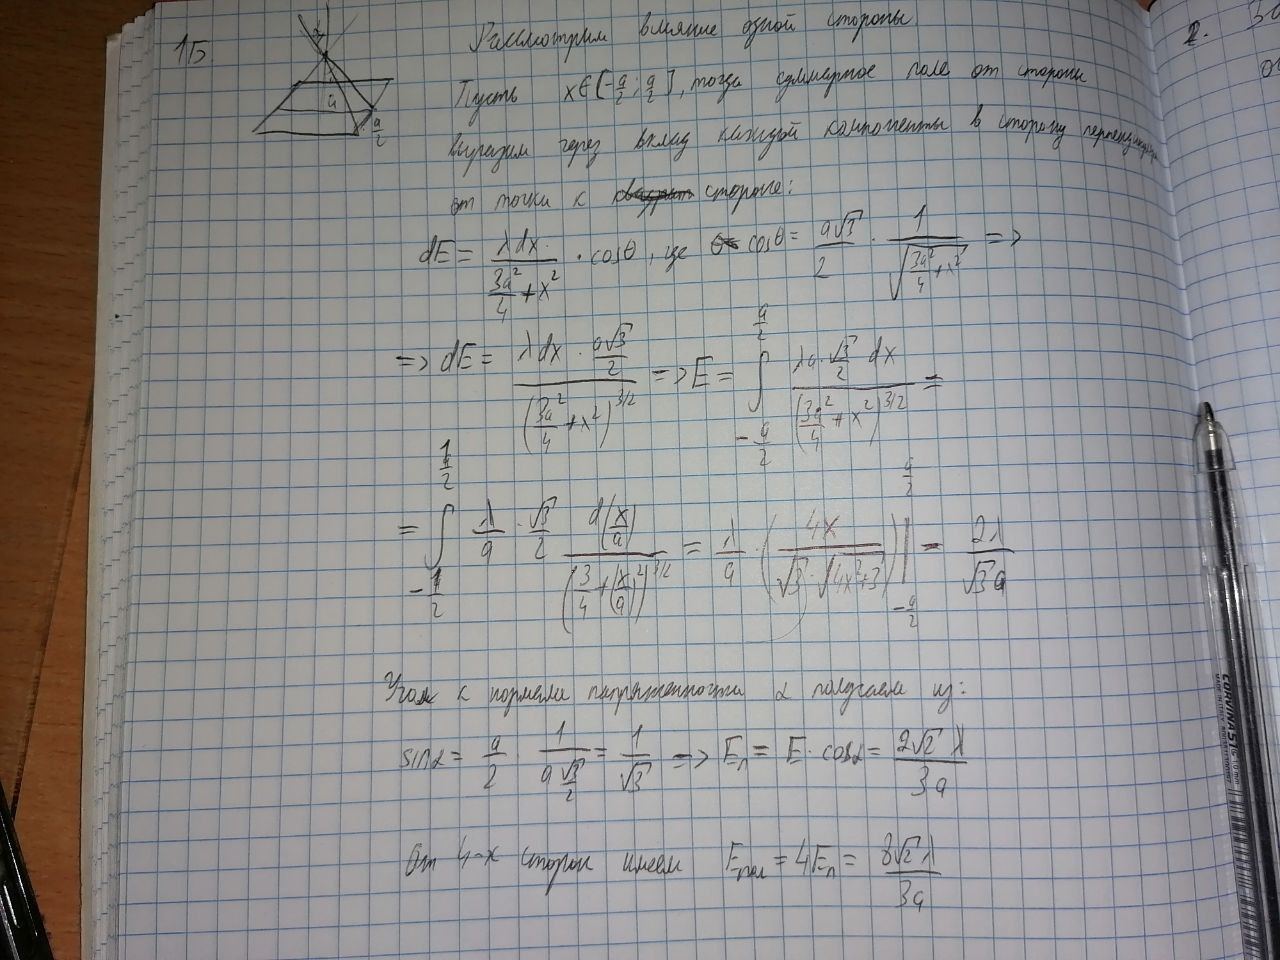 1Б.
Рассмотрим влияние одной стороны
2.
Пусть x∈[-a/2; a/2], тогда суммарное поле от стороны
выразим через вклад каждой компоненты в сторону
от точки к стороне:
dE = λdx/(3a²/4 + x²) · cosθ, где cosθ = a√3/2 · 1/√(3a²/4 + x²) =>
=> dE = (λdx · a√3/2)/(3a²/4 + x²)^(3/2) => E = ∫_{-a/2}^{a/2} (λa · √3/2 dx)/(3a²/4 + x²)^(3/2) =
= ∫_{-1/2}^{1/2} λ/a · √3/2 d(x/a)/(3/4 + (x/a)²)^(3/2) = λ/a · (4x/(√3 · √(4x²+3)))|_{-a/2}^{a/2} = 2λ/(√3a)
Угол к нормали напряженности α получаем из:
sinα = a/2 1/(a√3/2) = 1/√3 => Eₙ = E · cosα = 2√2 λ/3a
a
a/2
От 4-х сторон имеем Eпол = 4Eₙ = 8√2 λ/3a
CORVINA 51